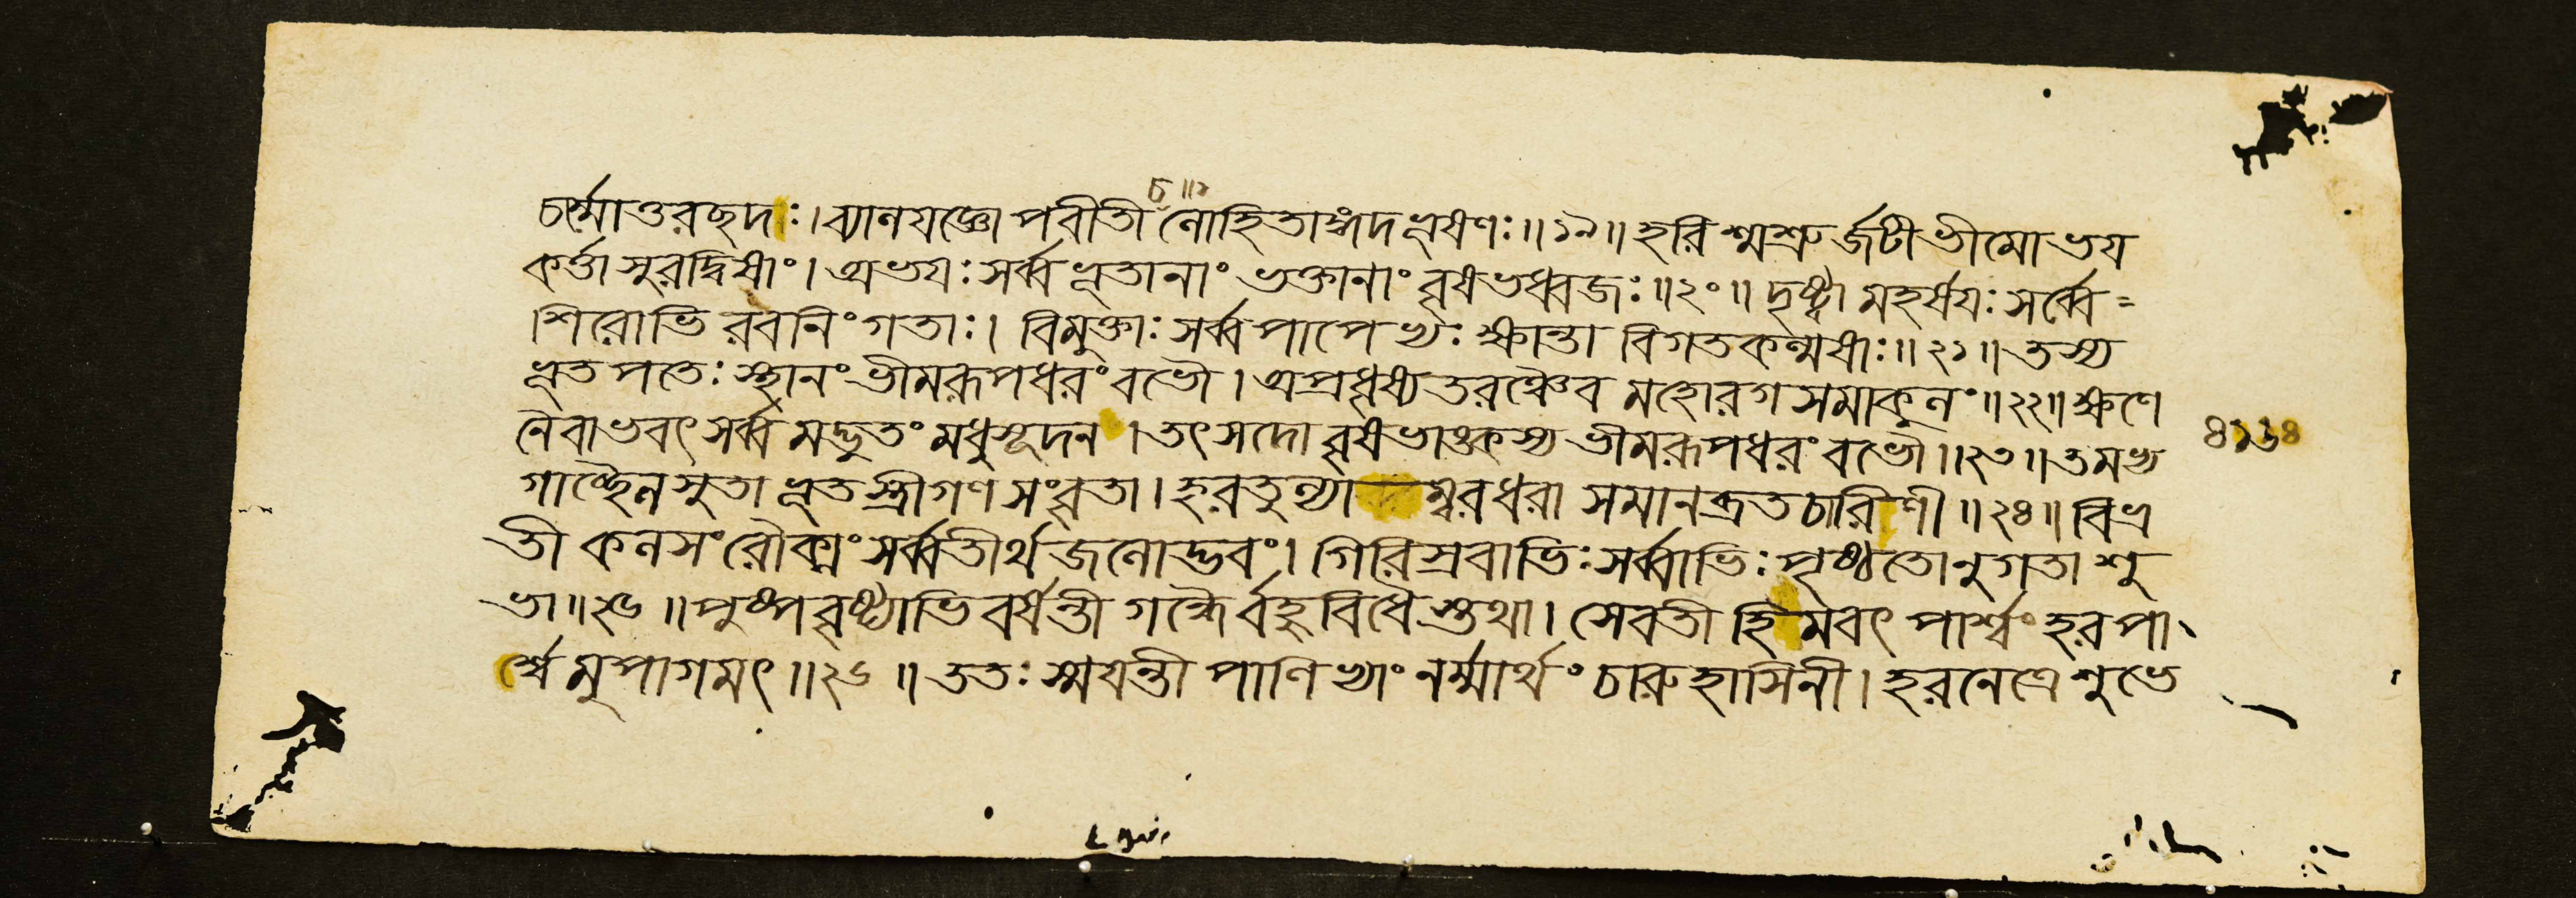 চৰ্ম্মোত্তরছদঃ।ব্যালযজ্ঞোপবীতী চ লোহিতাঙ্গদভূষণঃ॥১৯॥হরিশ্মশ্রুর্জটীভীমোভয
কর্ত্তাসুরদ্বিষাং।অভযঃসর্ব্বভূতানাং ভক্তানাং বৃষভধ্বজঃ॥২০॥দৃষ্ট্বা মহর্ষযঃ সর্ব্বে=
শিরোভিরবনিংগতাঃ।বিমুক্তাঃসর্ব্বপাপেভ্যঃ ক্ষান্তা বিগতকল্মষাঃ॥২১॥তস্য
ভূতপতেঃ স্থানং ভীমরূপধরং বভৌ।অপ্রধৃষ্যতরঞ্চৈব মহোরগসমাকুলং॥২২॥ক্ষণে
নৈবাভবৎ সর্ব্বমদ্ভুতং মধুসূদন।তৎসদো বৃষভাঙ্কস্য ভীমরূপধরং বভৌ॥২৩॥তমভ্য
গাচ্ছৈলসুতা ভূতস্ত্রীগণসংবৃতা।হরতুল্যাম্বরধরা সমানব্রতচারিণী॥২৪॥বিভ্র
তী কলসং রৌক্মং সর্ব্বতীর্থজলোদ্ভবং।গিরিস্রবাভিঃসর্ব্বাভিঃপৃষ্ঠতোনুগতা শু
ভা॥২৫॥পুষ্পবৃষ্ট্যাভিবর্ষন্তী গন্ধৈর্বহুবিধৈস্তথা।সেবতী হিমবৎ পার্শ্বং হরপা
র্শ্বমুপাগমৎ॥২৬॥ততঃ স্মযন্তী পাণিভ্যাং নর্ম্মার্থং চারুহাসিনী।হরনেত্রে শুভে